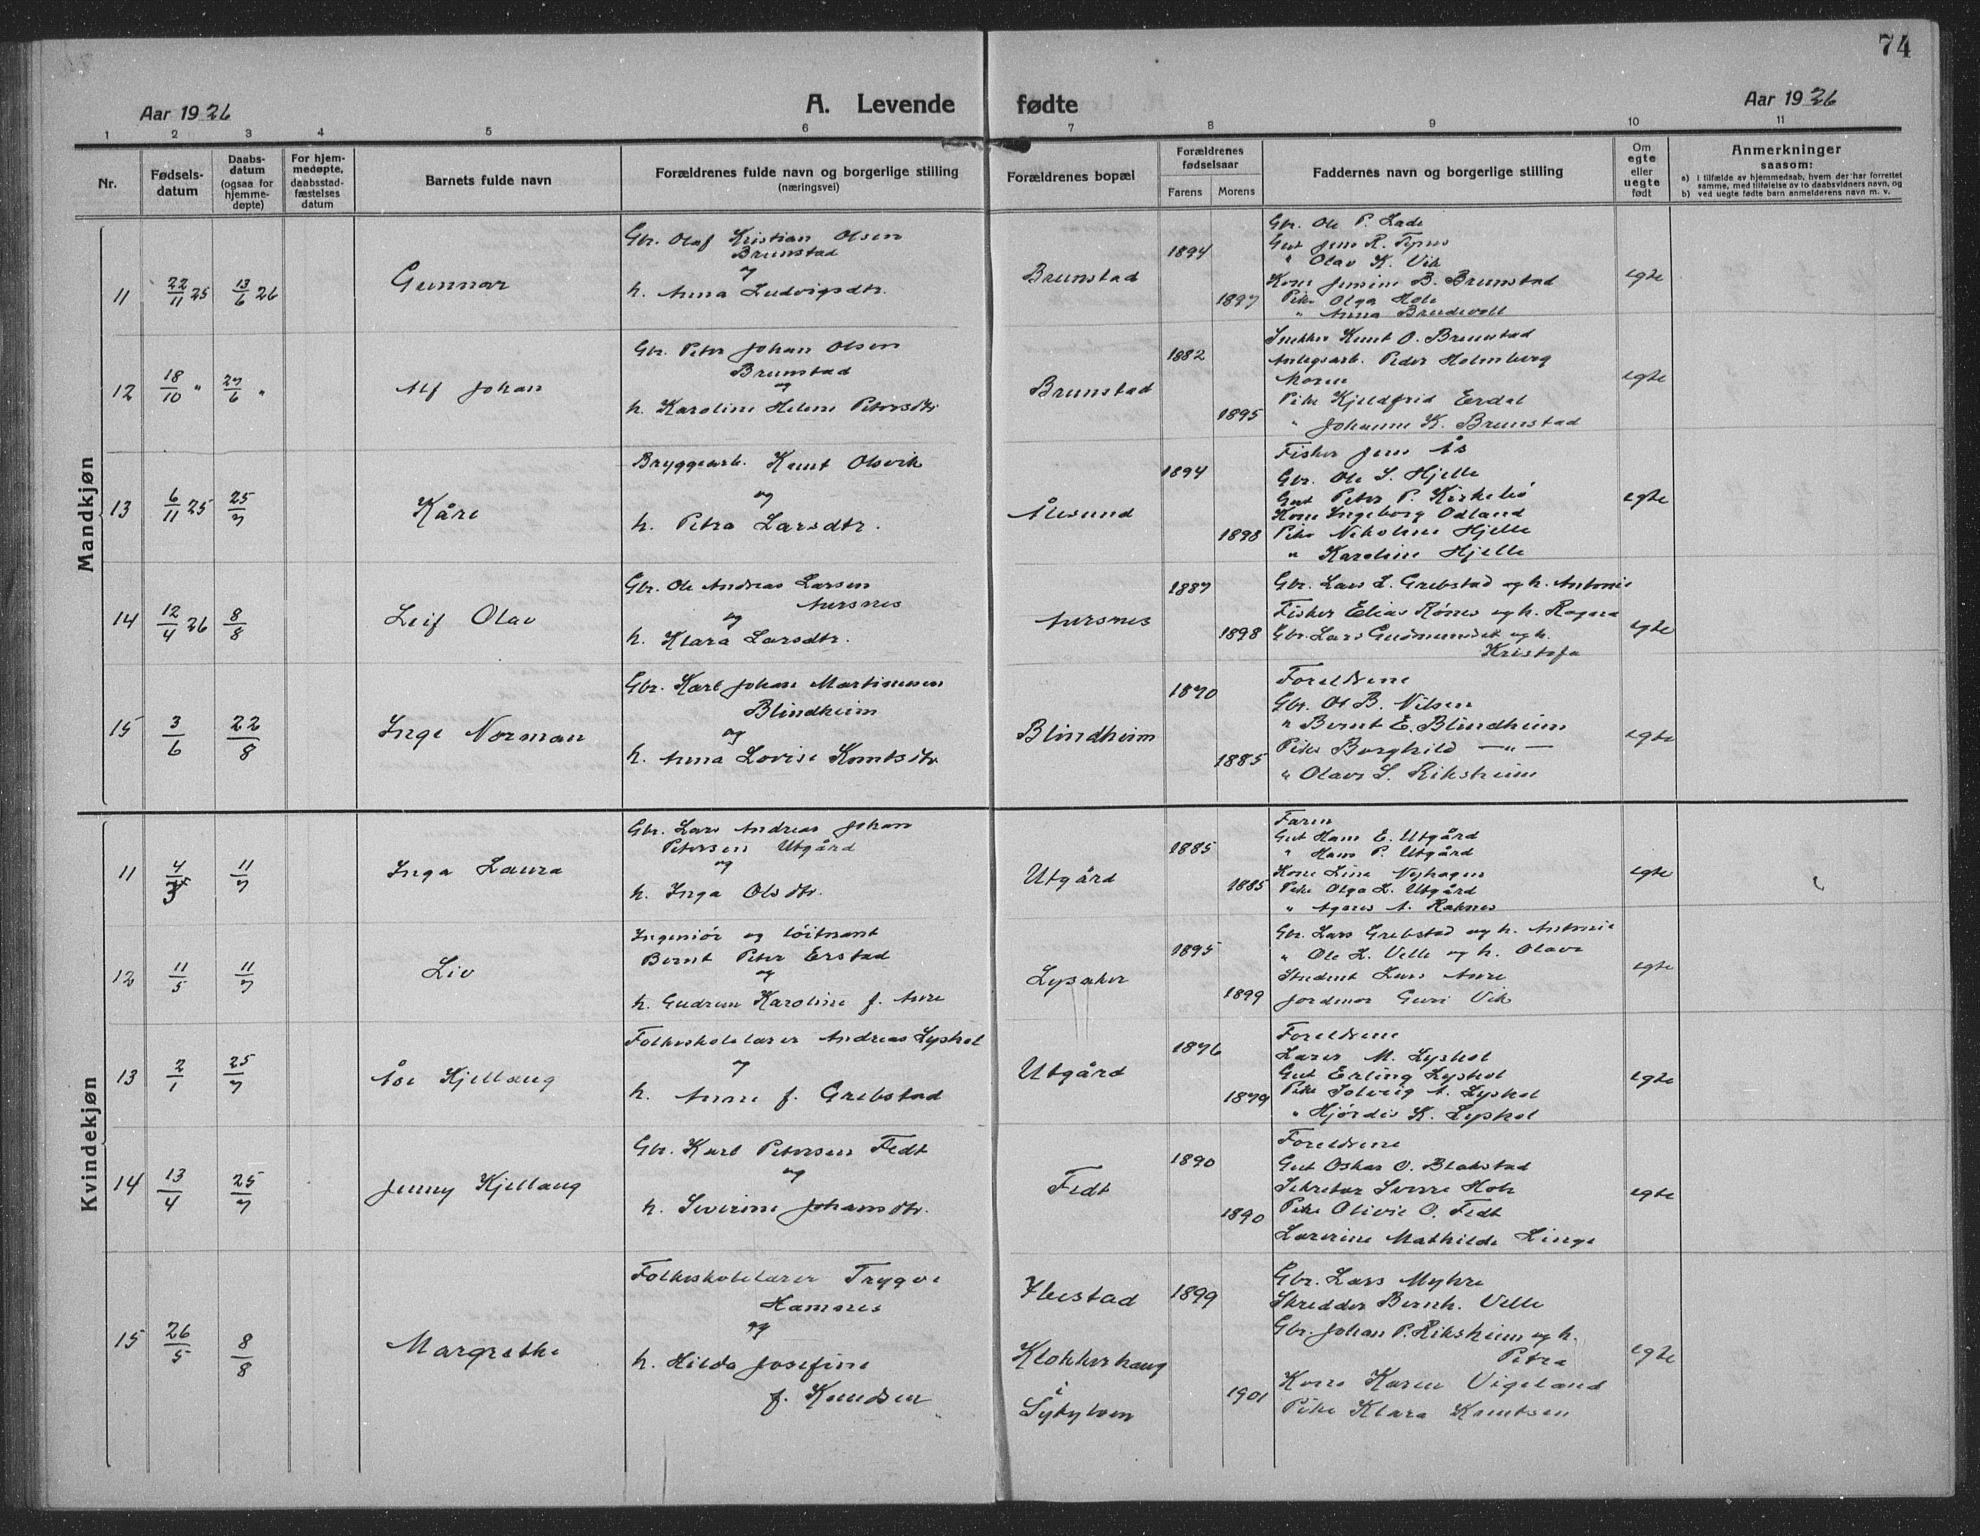 74
Aar 1926
A. Levende fødte
Aar 1926
1 2 3 4 5 6 7 8 9 10 11
Nr.
Fødsels-
datum
Daabs-
datum
(ogsaa for
hjemme-
døpte)
For hjem-
medøpte,
daabsstad-
fæstelses
datum
Barnets fulde navn
Forældrenes fulde navn og borgerlige stilling
(næringsvei)
Forældrenes bopæl
Forældrenes
fødselsaar
Farens Morens
Faddernes navn og borgerlige stilling
Om
egte
eller
uegte
født
Anmerkninger
saasom:
a) i tilfælde av hjemmedaab, hvem der har forrettet
samme, med tilføielse av to daabsvidners navn, og
b) ved uegte fødte barn anmelderens navn m. v.
Mandkjøn
11 22/11 25 13/6 26 Gunnar
Gbr. Olaf Kristian Olsen
Brunstad
og
h. Anna Ludvigsdtr.
Brunstad
1894
1897
Gbr. Ole P. Lade
Gut Jens R. Tynes
" Olav K. Vik
Kone Jensine B. Brunstad
Pike Olga Hole
" Anna Brudevoll
egte
12 18/10 " 27/6 " Alf Johan
Gbr. Peter Johan Olsen
Brunstad
og
h. Karoline Helene Petersdtr
Brunstad
1882
1895
Snekker Knut O. Brunstad
Anlegsarb. Peder Holmberg
Moren
Pike Kjeldfrid Erdal
" Johanne K. Brunstad
egte
13 6/11 25 25/7 Kåre
Bryggearb. Knut Olsvik
og
h. Petra Larsdtr.
Ålesund
1894
1898
Fisker Jens Ås
Gbr. Ole S. Hjelle
Gut Peter P. Kirkebø
Kone Ingeborg Odland
Pike Nikoline Hjelle
" Karoline Hjelle
egte
14 12/4 26 8/8 Leif Olav
Gbr. Ole Andreas Larsen
Aursnes
og
h. Klara Larsdtr.
Aursnes
1887
1898
Gbr. Lars L. Grebstad og h. Antonie
Fisker Elias Rønes og h. Ragna
Gbr. Lars Gudmundset og h.
Kristofa
egte
15 3/6 22/8 Inge Norman
Gbr. Karl Johan Martinusen
Blindheim
og
h. Anna Lovise Knutsdtr
Blindheim
1870
1885
Foreldrene
Gbr. Ol B. Nilsen
" Bernt E. Blindheim
Pike Borghild — " —
" Olave S. Riksheim
egte
Kvindekjøn
11 4/3 11/7 Inga Laura
Gbr. Lars Andreas Johan
Petersen Utgård
og
h. Inga Olsdtr.
Utgård
1885
1885
Faren
Gut Hans E. Utgård
" Hans P. Utgård
Kone Line Nyhagen
Pike Olga L. Utgård
" Agnes A.
egte
12 11/5 11/7 Liv
Ingeniør og løitnant
Bernt Peter Erstad
og
h. Gudrun Karoline f. Aure
Lysaker
1895
1899
Gbr. Lars Grebstad og h. Antonie
" Ole L. Velle og h. Olave
Student Lars Aure
Jordmor Guri Vik
egte
13 2/1 25/7 Åse Kjellaug
Folkeskolelærer Andreas Lyshol
og
h. Anne f. Grebstad
Utgård
1876
1879
Foreldrene
Lærer M. Lyshol
Gut Erling Lyshol
Pike Solveig A. Lyshol
" Hjørdis K. Lyshol
egte
14 13/4 25/7 Jenny Kjellaug
Gbr. Karl Petersen Fedt
og
h. Severine Johansdtr.
Fedt
1890
1890
Foreldrene
Gut Oskar O. Blakstad
Sekretær Sverre Hole
Pike Olivie O. Fedt
Lærerine Mathilde Linge
egte
15 26/5 8/8 Margrethe
Folkeskolelærer Trygve
Hamnes
og
h. Hilda Josefine
f. Knudsen
Ikestad
Klokkerhaug
i
Sykylven
1899
1901
Gbr. Lars Myhre
Skredder Bernh. Velle
Gbr. Johan P. Riksheim og h.
Petra
Kone Karen Vigeland
Pike Klara Knutsen
egte